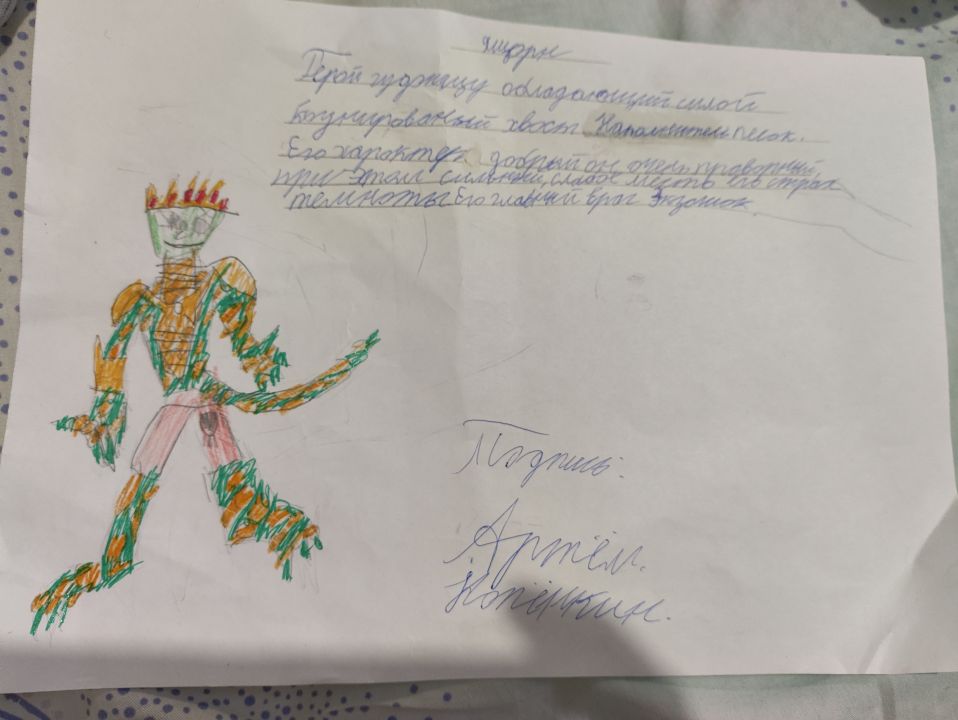 Ящорн
Герой гуджицу обладающий силой
Казнированый хвост Наполнител песок.
Его характер добрый он очен проворный,
при этом сильный, слабое месть его страх
темноты Его главный враг Экзошок.
Подпись:
Артём.
Копёнкин.